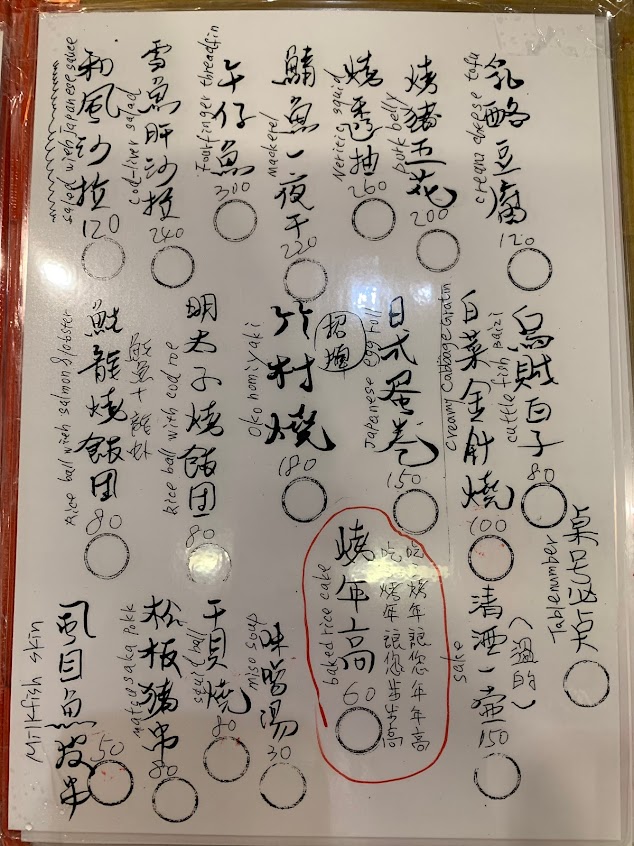 乳酪豆腐
cream cheese tofu
120
烤豬五花
pork belly
200
燒透抽
Neritic squid
260
鯖魚一夜干
Mackerel
220
午仔魚
Fourfinger threadfin
300
雪魚肝沙拉
Cod-liver salad
240
和風沙拉
salad with japanese sauce
120
烏賊白子
cuttle fish baizi
80
白菜金針燒
Creamy Cabbage Gratin
100
日式蛋卷
Japanese egg roll
150
招牌
竹村燒
Okonomiyaki
180
明太子燒飯団
Rice ball with cod roe
80
鮭龍燒飯団
鮭魚+龍蝦
Rice ball with salmon & lobster
80
Table number
清酒一壺
(溫的)
sake
150
吃烤年讓您年年高
吃烤年讓您步步高
烤年高
baked rice cake
60
味噌湯
miso soup
30
干貝燒
squid ball
80
松板豬串
matsusaka pokk
80
虱目魚皮串
Milkfish skin
50